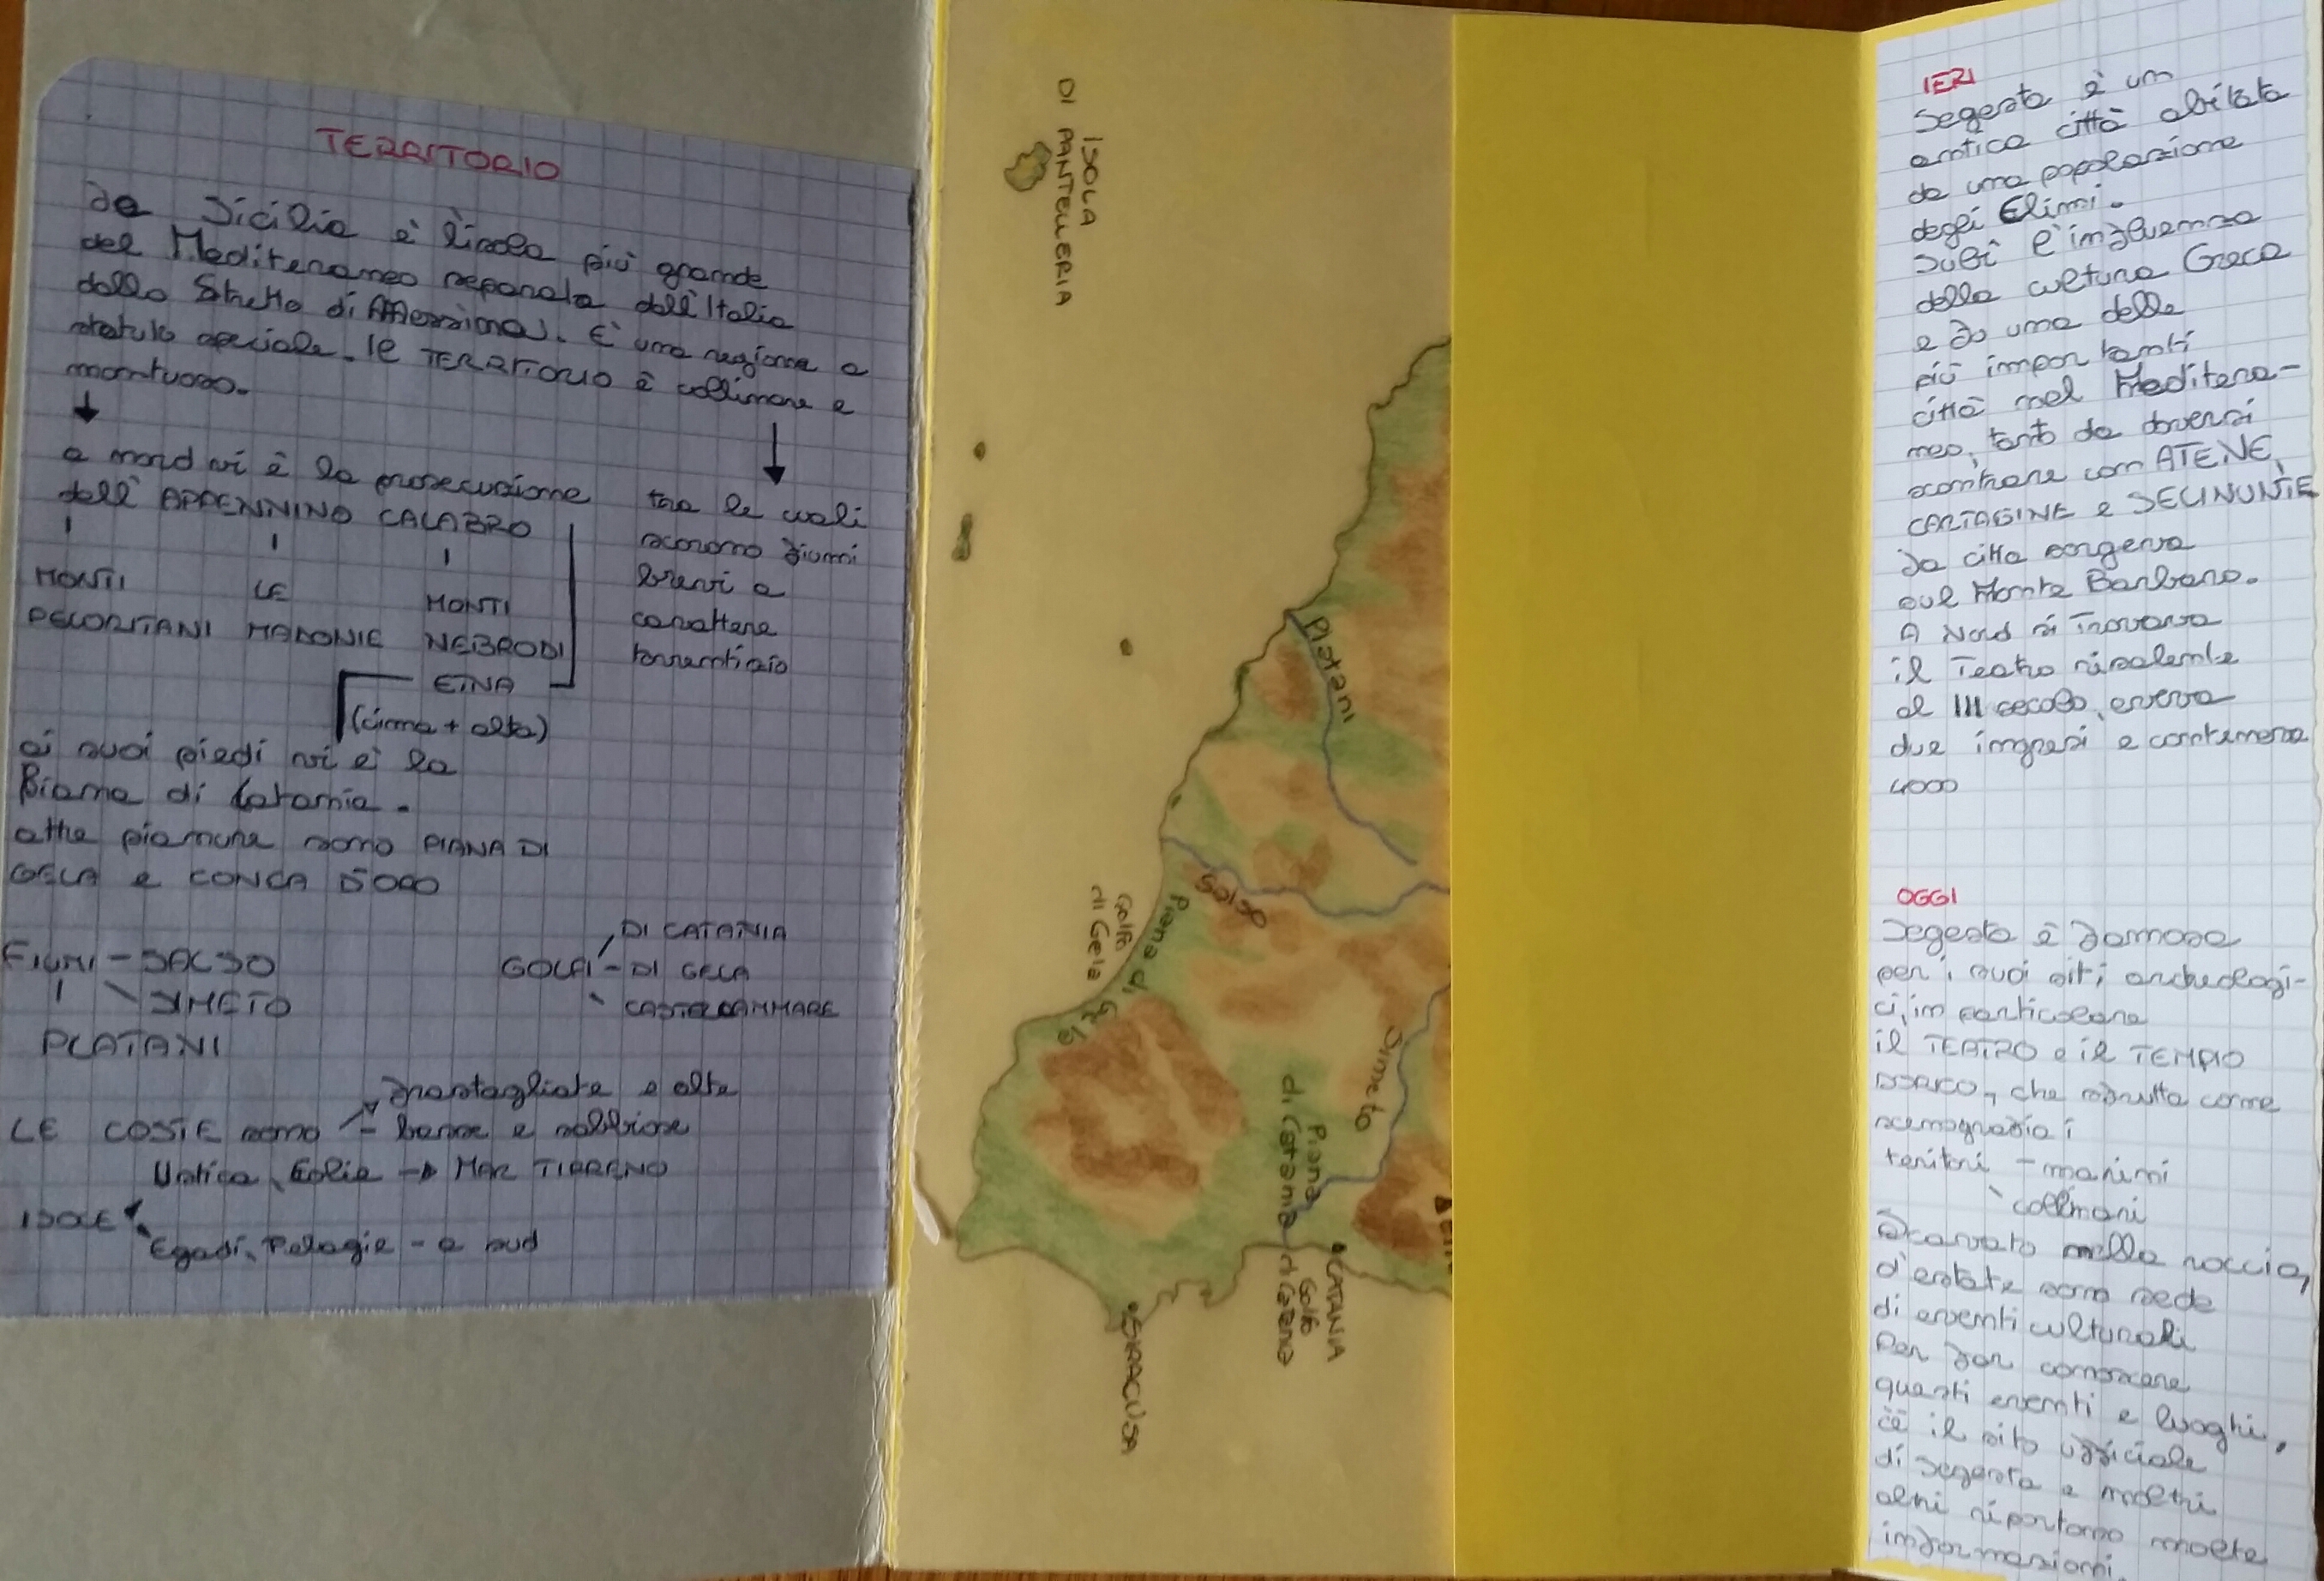 TERRITORIO
La Sicilia è l'isola più grande
del Mediteraneo separata dall'Italia
dallo Stretto di Messina). È una regione a
statuto speciale. Il TERRITORIO è collinare e
montuoso.
a nord vi è la prosecuzione
dell'APPENNINO CALABRO
MONTI LE MONTI
PELORITANI MADONIE NEBRODI
ETNA
(cima + alta)
tra le quali
scorono fiumi
brevi a
carattere
torrentizio
ai suoi piedi vi è la
Piana di Catania.
altre pianure sono PIANA DI
GELA e CONCA D'ORO
FIUMI - SALSO
SIMETO
PLATANI
GOLFI DI CATANIA
- DI GELA
CASTELLAMMARE
LE COSTE sono frastagliate e alte
- basse e sabbiose
ISOLE Ustica, Eolie → MAR TIRRENO
Egadi, Pelagie - a sud
ISOLA
DI PANTELLERIA
Platani
Salso
Piana di Gela
Golfo
di Gela
Simeto
Piana
di Catania
CATANIA
Golfo
di Catania
SIRACUSA
IERI
Segesta è un
antica città abitata
da una popolazione
degli Elimi.
Subì l'influenza
della cultura Greca
e fu una delle
più importanti
città nel Meditera-
neo, tanto da doversi
scontrare con ATENE,
CARTAGINE e SELINUNTE
La citta sorgeva
sul Monte Barbaro.
A Nord si Trovava
il Teatro risalente
al III secolo, aveva
due ingressi e conteneva
4000
OGGI
Segesta è famosa
per i suoi siti archeologi-
ci, in particolare
il TEATRO e il TEMPIO
DORICO, che sfrutta come
scenografia i
teritori - marini
collinari
Scavato nella roccia,
d'estate sono sede
di eventi culturali
Per far conoscere
questi eventi e luoghi,
c'è il sito ufficiale
di Segesta e molti
altri riportano molte
informazioni.